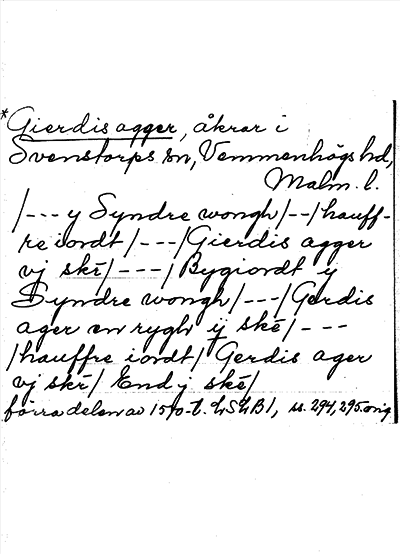 *Gierdis agger, åkrar i
Svenstorps sn, Vemmenhögs hd,
Malm. l.
/---y Syndre wongh/--/hauff-
re iordt/---/Gierdis agger
vj skē/---/Bygiordt y
Syndre wongh/---/Gerdis
ager en rygh ij skē/---
/hauffre iordt/ Gerdis ager
vj skē/ End j skē/
förra delen av 1570-t. LSLB1, ss. 294, 295. orig